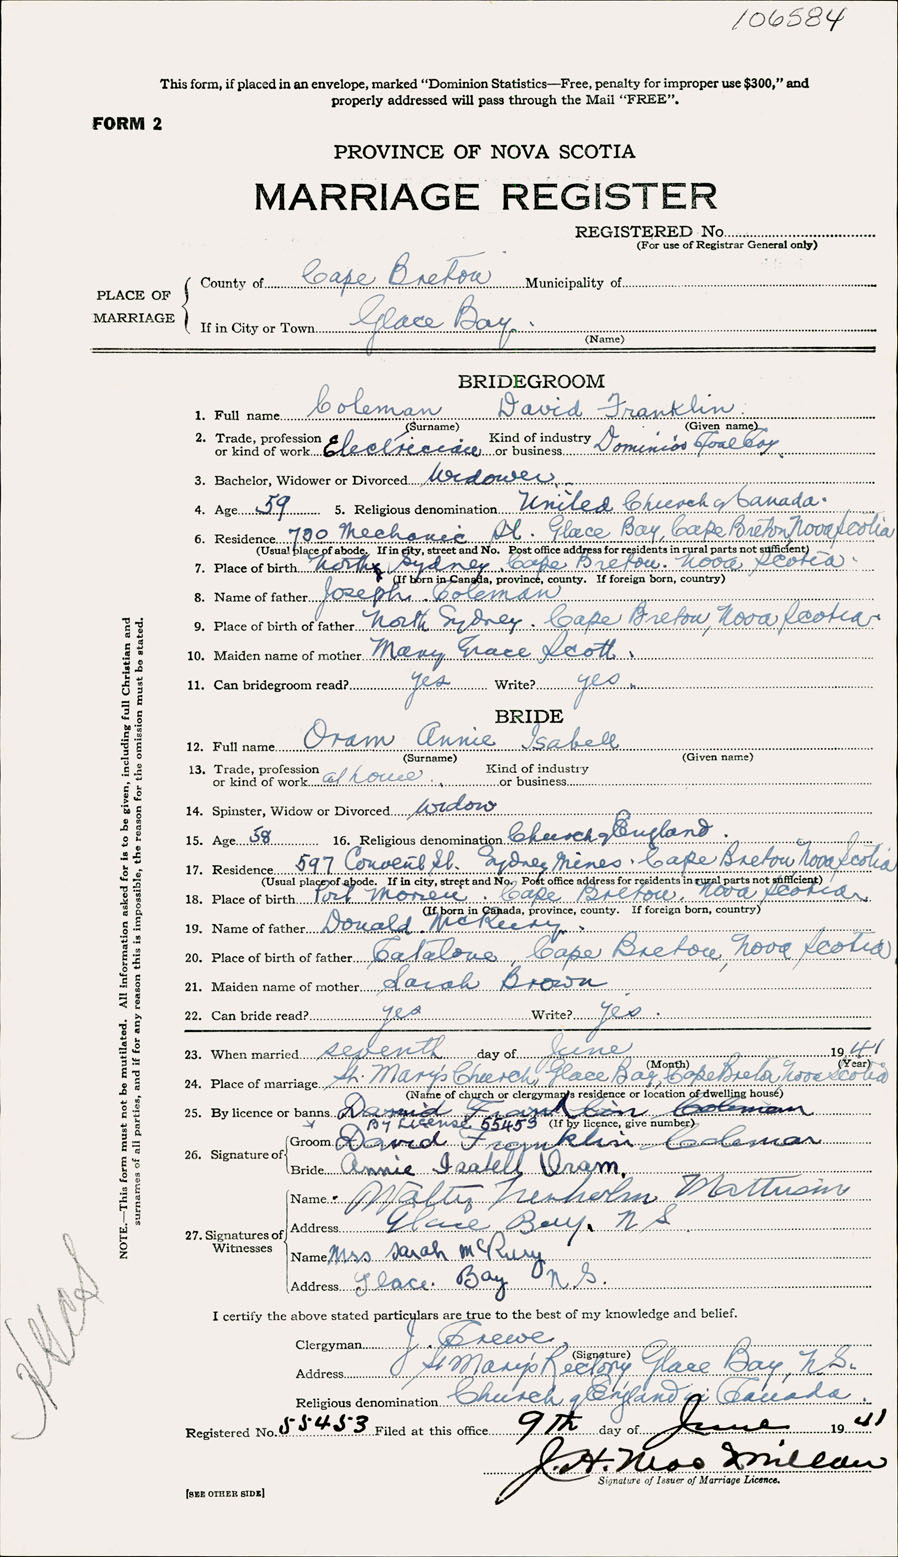 106584
This form, if placed in an envelope, marked “Dominion Statistics—Free, penalty for improper use $300,” and
properly addressed will pass through the Mail “FREE”.
FORM 2
PROVINCE OF NOVA SCOTIA
MARRIAGE REGISTER
REGISTERED No.
(For use of Registrar General only)
PLACE OF MARRIAGE
County of Cape Breton Municipality of
If in City or Town Glace Bay.
(Name)
BRIDEGROOM
1. Full name Coleman David Franklin
(Surname) (Given name)
2. Trade, profession or kind of work Electrician Kind of industry or business Dominion Coal Coy.
3. Bachelor, Widower or Divorced Widower
4. Age 59 5. Religious denomination United Church of Canada.
6. Residence 700 Mechanic St. Glace Bay, Cape Breton Nova Scotia
(Usual place of abode. If in city, street and No. Post office address for residents in rural parts not sufficient)
7. Place of birth North Sydney. Cape Breton. Nova Scotia.
(If born in Canada, province, county. If foreign born, country)
8. Name of father Joseph Coleman
9. Place of birth of father North Sydney. Cape Breton, Nova Scotia.
10. Maiden name of mother Mary Grace Scott.
11. Can bridegroom read? yes Write? yes.
BRIDE
12. Full name Oram Annie Isabell
(Surname) (Given name)
13. Trade, profession or kind of work at home Kind of industry or business
14. Spinster, Widow or Divorced widow
15. Age 58 16. Religious denomination Church of England.
17. Residence 597 Convent St. Sydney Mines. Cape Breton Nova Scotia
(Usual place of abode. If in city, street and No. Post office address for residents in rural parts not sufficient)
18. Place of birth Port Morien. Cape Breton. Nova Scotia.
(If born in Canada, province, county. If foreign born, country)
19. Name of father Donald
20. Place of birth of father Catalone, Cape Breton, Nova Scotia
21. Maiden name of mother Sarah Brown
22. Can bride read? yes Write? yes.
23. When married seventh day of June 1941
(Month) (Year)
24. Place of marriage St. Mary's Church, Glace Bay, Cape Breton Nova Scotia
(Name of church or clergyman's residence or location of dwelling house)
25. By licence or banns David Franklin Coleman
By License 55453 (If by licence, give number)
26. Signature of Groom David Franklin Coleman
Bride Annie Isabell Oram.
27. Signatures of Witnesses
Name
Address Glace Bay, N.S.
Name Mrs Sarah
Address Glace Bay N.S.
I certify the above stated particulars are true to the best of my knowledge and belief.
Clergyman J.
(Signature)
Address St Mary's Rectory Glace Bay, N.S.
Religious denomination Church of England in Canada.
Registered No. 55453 Filed at this office 9th day of June 1941
J. H.
Signature of Issuer of Marriage Licence.
[SEE OTHER SIDE]
NOTE.—This form must not be mutilated. All information asked for is to be given, including full Christian and
surnames of all parties, and if for any reason this is impossible, the reason for the omission must be stated.